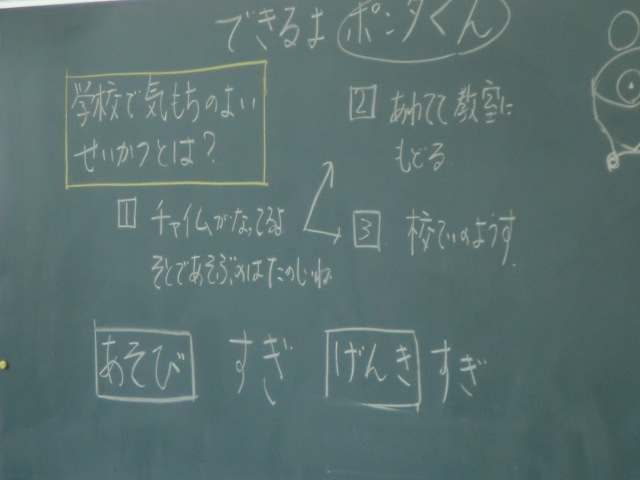 できるよ ポンタくん
学校で気もちのよい
せいかつとは？
1 チャイムがなってるよ
そとであそぶのはたのしいね
2 あわてて教室に
もどる
3 校ていのようす
あそび すぎ げんき すぎ